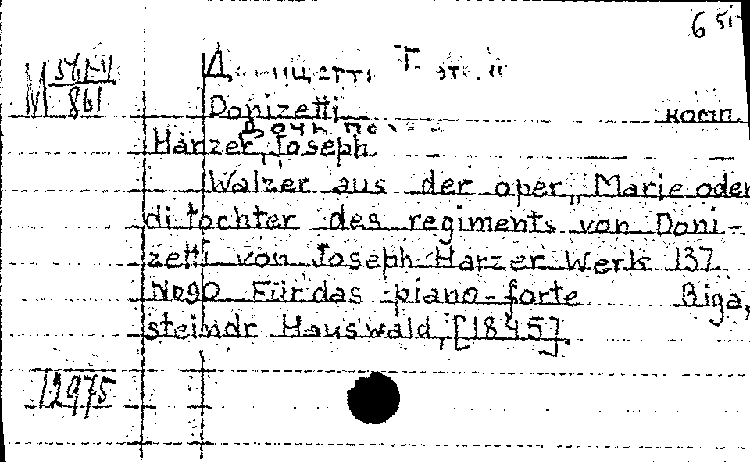 Donizetti
комп.
Harzer, Joseph
Walzer aus der oper „Marie oder
di tochter des regiments von Doni-
zetti von Joseph Harzer Werk 137
No90 Für das piano-forte Riga,
steindr Hauswald, [1845].
12975